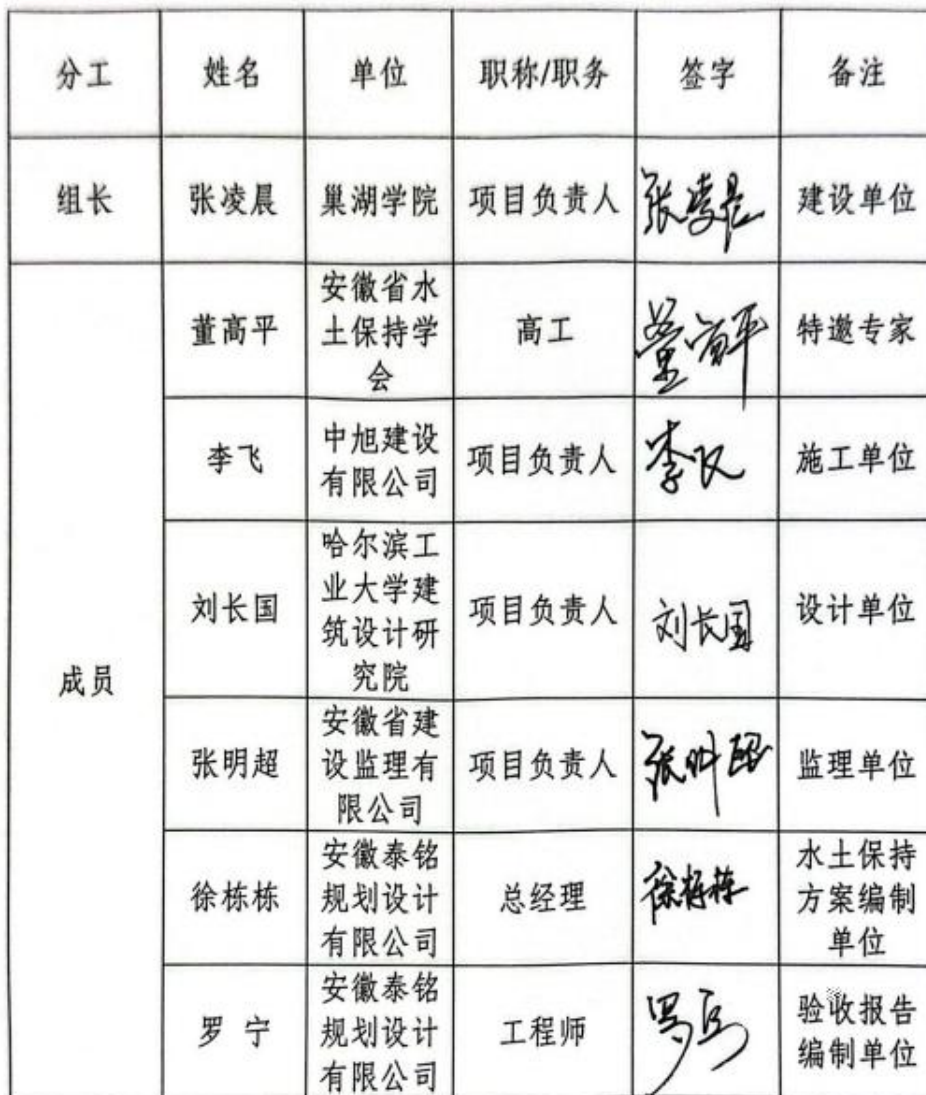 分工 姓名 单位 职称/职务 签字 备注
组长 张凌晨 巢湖学院 项目负责人 张凌晨 建设单位
成员
董高平 安徽省水
土保持学
会 高工 董高平 特邀专家
李飞 中旭建设
有限公司 项目负责人 李飞 施工单位
刘长国 哈尔滨工
业大学建
筑设计研
究院 项目负责人 刘长国 设计单位
张明超 安徽省建
设监理有
限公司 项目负责人 张明超 监理单位
徐栋栋 安徽泰铭
规划设计
有限公司 总经理 徐栋栋 水土保持
方案编制
单位
罗 宁 安徽泰铭
规划设计
有限公司 工程师 罗宁 验收报告
编制单位